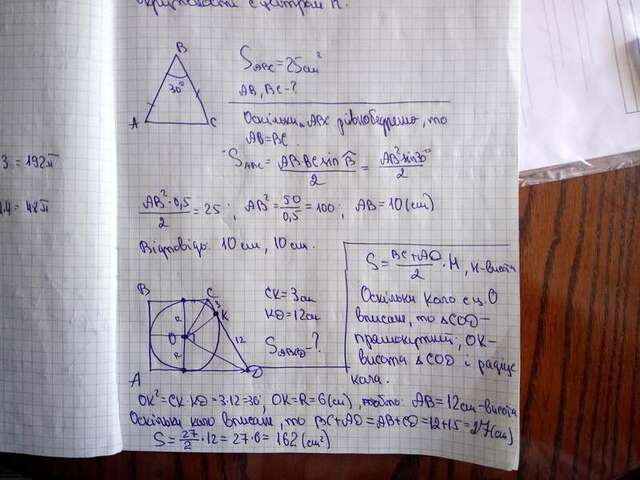 окружности с центром K.
3 = 192π
4 = 48π
B
30°
A
C
S_ABC = 25 см²
AB, BC - ?
Оскільки ABC рівнобедрене, то
AB = BC.
S_ABC = AB·BC sin B̂ / 2 = AB² sin 30° / 2
AB²·0,5 / 2 = 25; AB² = 50/0,5 = 100; AB = 10 (см)
Відповідь: 10 см, 10 см.
B
C
3
K
12
O
R
R
A
D
CK = 3 см
KD = 12 см
S_ABCD - ?
S = BC + AD / 2 · H, H - висота
Оскільки коло с ц. O
вписане, то ΔCOD -
прямокутний; OK -
висота ΔCOD і радіус
кола.
OK² = CK·KD = 3·12 = 36, OK = R = 6 (см), тобто: AB = 12 см - висота
Оскільки коло вписане, то BC + AD = AB + CD = 12 + 15 = 27 (см)
S = 27/2 · 12 = 27·6 = 162 (см²)